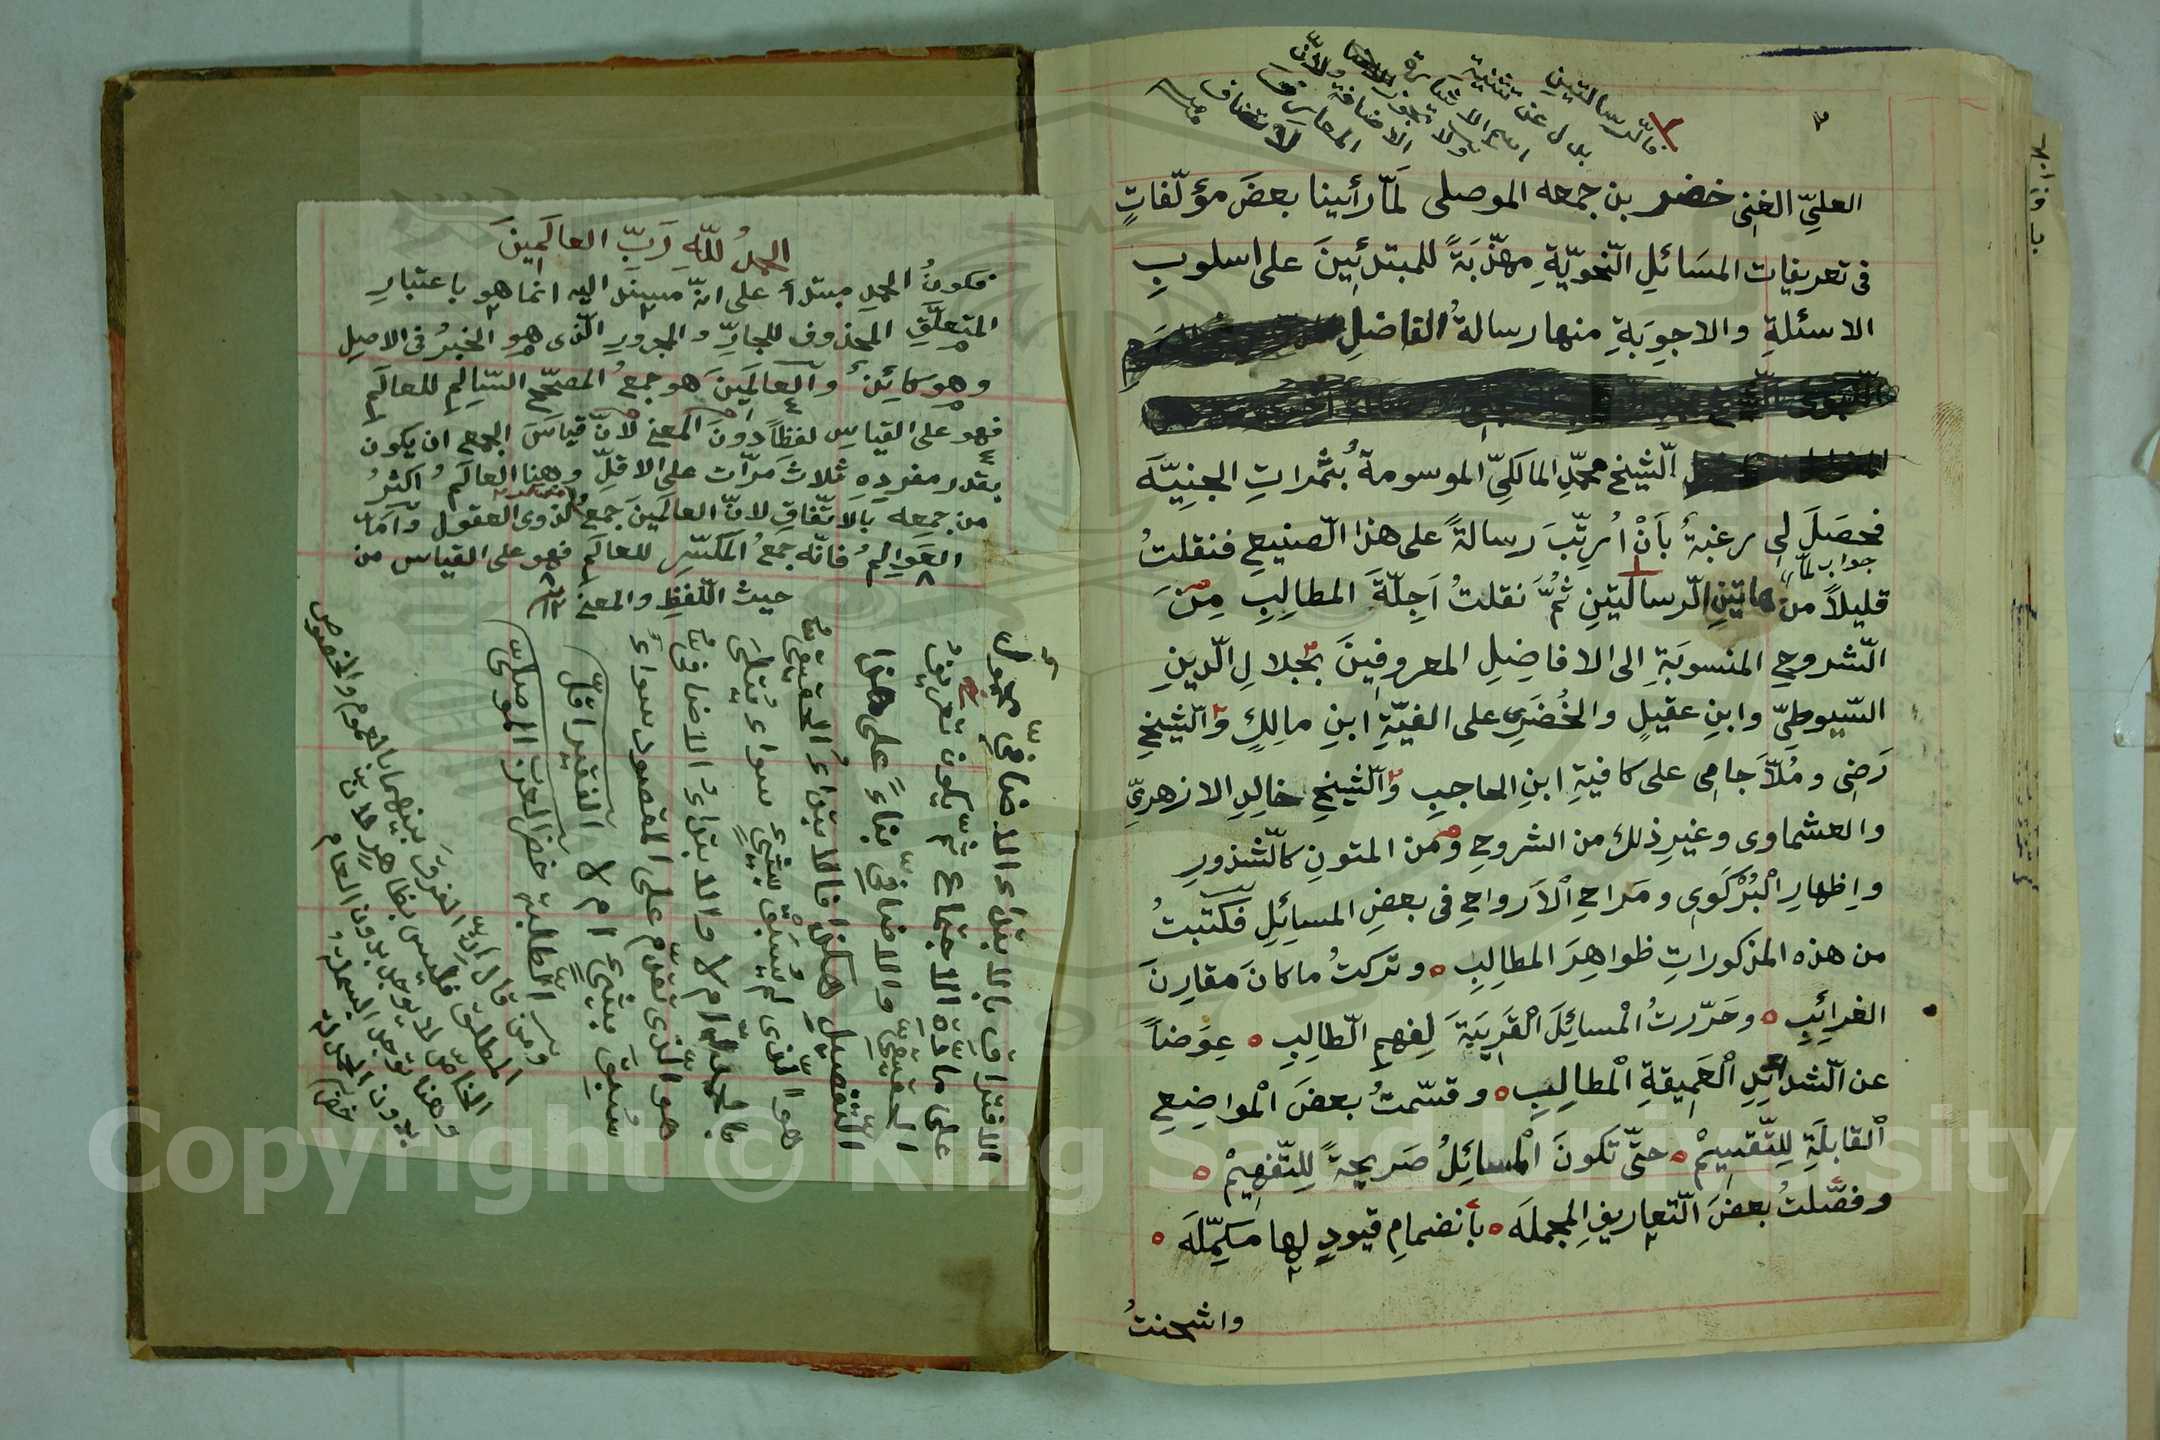 فالرسالتين
بدل عن تثنية
اسم الاشارة
ولا تجوز
الاضافة ولأن
المعارف
لا تضاف
العليّ الغنى خضر بن جمعه الموصلى لمّا رأينا بعضَ مؤلّفاتٍ
فى تعريفات المسَائلِ النّحويّةِ مهذّبَةً للمبتدئِينَ على اسلوبِ
الاسئلةِ والاجوِبَةِ منها رسالةُ الفاضلِ
الشيخ محمّدِ المالكىّ الموسومةُ بثمراتِ الجنِيّهَ
فحصَلَ لى رغبةُ بأَنْ اُرتِّبَ رسالةً على هذا الصنيعِ فنقلتُ
جواب لمّا
قليلاً من هاتينِ الرّسالتينِ ثُمَّ نقلتُ اَجِلّةَ المطالِبِ مِنَ
الشروحِ المنسوبَةِ الى الافاضِلِ المعروفِينَ بجلالِ الّدينِ
السّيوطىّ وابنِ عقيلٍ والخُضَرِى على الفيّةِ ابنِ مالِكٍ والشّيخِ
رَضِى ومُلاّ جامى على كافيةِ ابنِ الحاجبِ والشّيخِ خالِدِ الازهرىّ
والعشماوى وغيرِ ذلك من الشروحِ ومن المتونِ كالشّذورِ
واِظهارِ الْبُرْكَوِى ومَراحِ الْاَرواحِ فى بعضِ المسائِلِ فكتبتُ
من هذه المذكوراتِ ظواهِرَ المطالِبِ ٥ وتركتُ ما كانَ مقارِنَ
الغرائِبِ ٥ وحَرّرتُ الْمسائِلَ الْقَرِيبَةَ لِفهمِ الطّالِبِ ٥ عِوَضاً
عن الشدائِدِ الْعَمِيقةِ الْمطالِبِ ٥ وقسّمتُ بعضَ الْمواضِعِ
الْقابلَةِ لِلتّقسِيمْ ٥ حتّى تكونَ الْمسائِلُ صَريحةً لِلتّفهِيمْ ٥
وفصّلتُ بعضَ التّعاريفِ المجملَه ٥ بأنضمامِ قيودٍ لها مكمّلَه ٥
واشحنتُ
الحمدُ للّهِ رَبّ العالَمِينَ
فكونُ الحمدِ مبتدأً على انّه مسنَد اليه انما هو باعتبارِ
المتعلَّقِ المحذوف للجارّ والمجرورِ الّذى هو الخبرُ فى الاصلِ
وهو كائِنٌ والعالَمِينَ هو جمعُ المصحّحِ السّالِمِ للعالَمِ
فهو على القياسِ لفظاً دونَ المعنى لأنّ قياسَ الجمعِ ان يكون
بقدر مفردِهِ ثلاثَ مرّات على الاقلِّ وهنا العالَمُ اكثرُ
من جمعِه بالاتّفاقِ لانّ العالَمِينَ جمعٌ لذوى العقول وأمّا
العَوالِمُ فانّه جمعُ المكسّرِ للعالَمِ فهو على القياس من
حيث اللّفظِ والمعنى
الافتراق بالابتداء الاضافىّ
على مادّه الاجتماع ثمّ يكون تعريفُ
الحقيقىّ والاضافىّ بناءً على هذا
التّفصيلِ هكذا فالابتداءُ الحقيقىّ
هو الّذى لم يُسبَقْ بشئٍ سواءً تلى
ام لا والابتداءُ الاضافىّ
هو الّذى تقدّم على المقصود سواءً
سُبِقَ بشئٍ ام لا الفقير اقلّ
الطلبة خضر الموصلىّ
ومن قال انّ الفرق بينهما بالعموم والخصوص
المطلق فليس بظاهر لأنّ
الخاصّ لا يوجد بدون العام
وهنا توجد البسملة
بدون الحمدلة
خضر